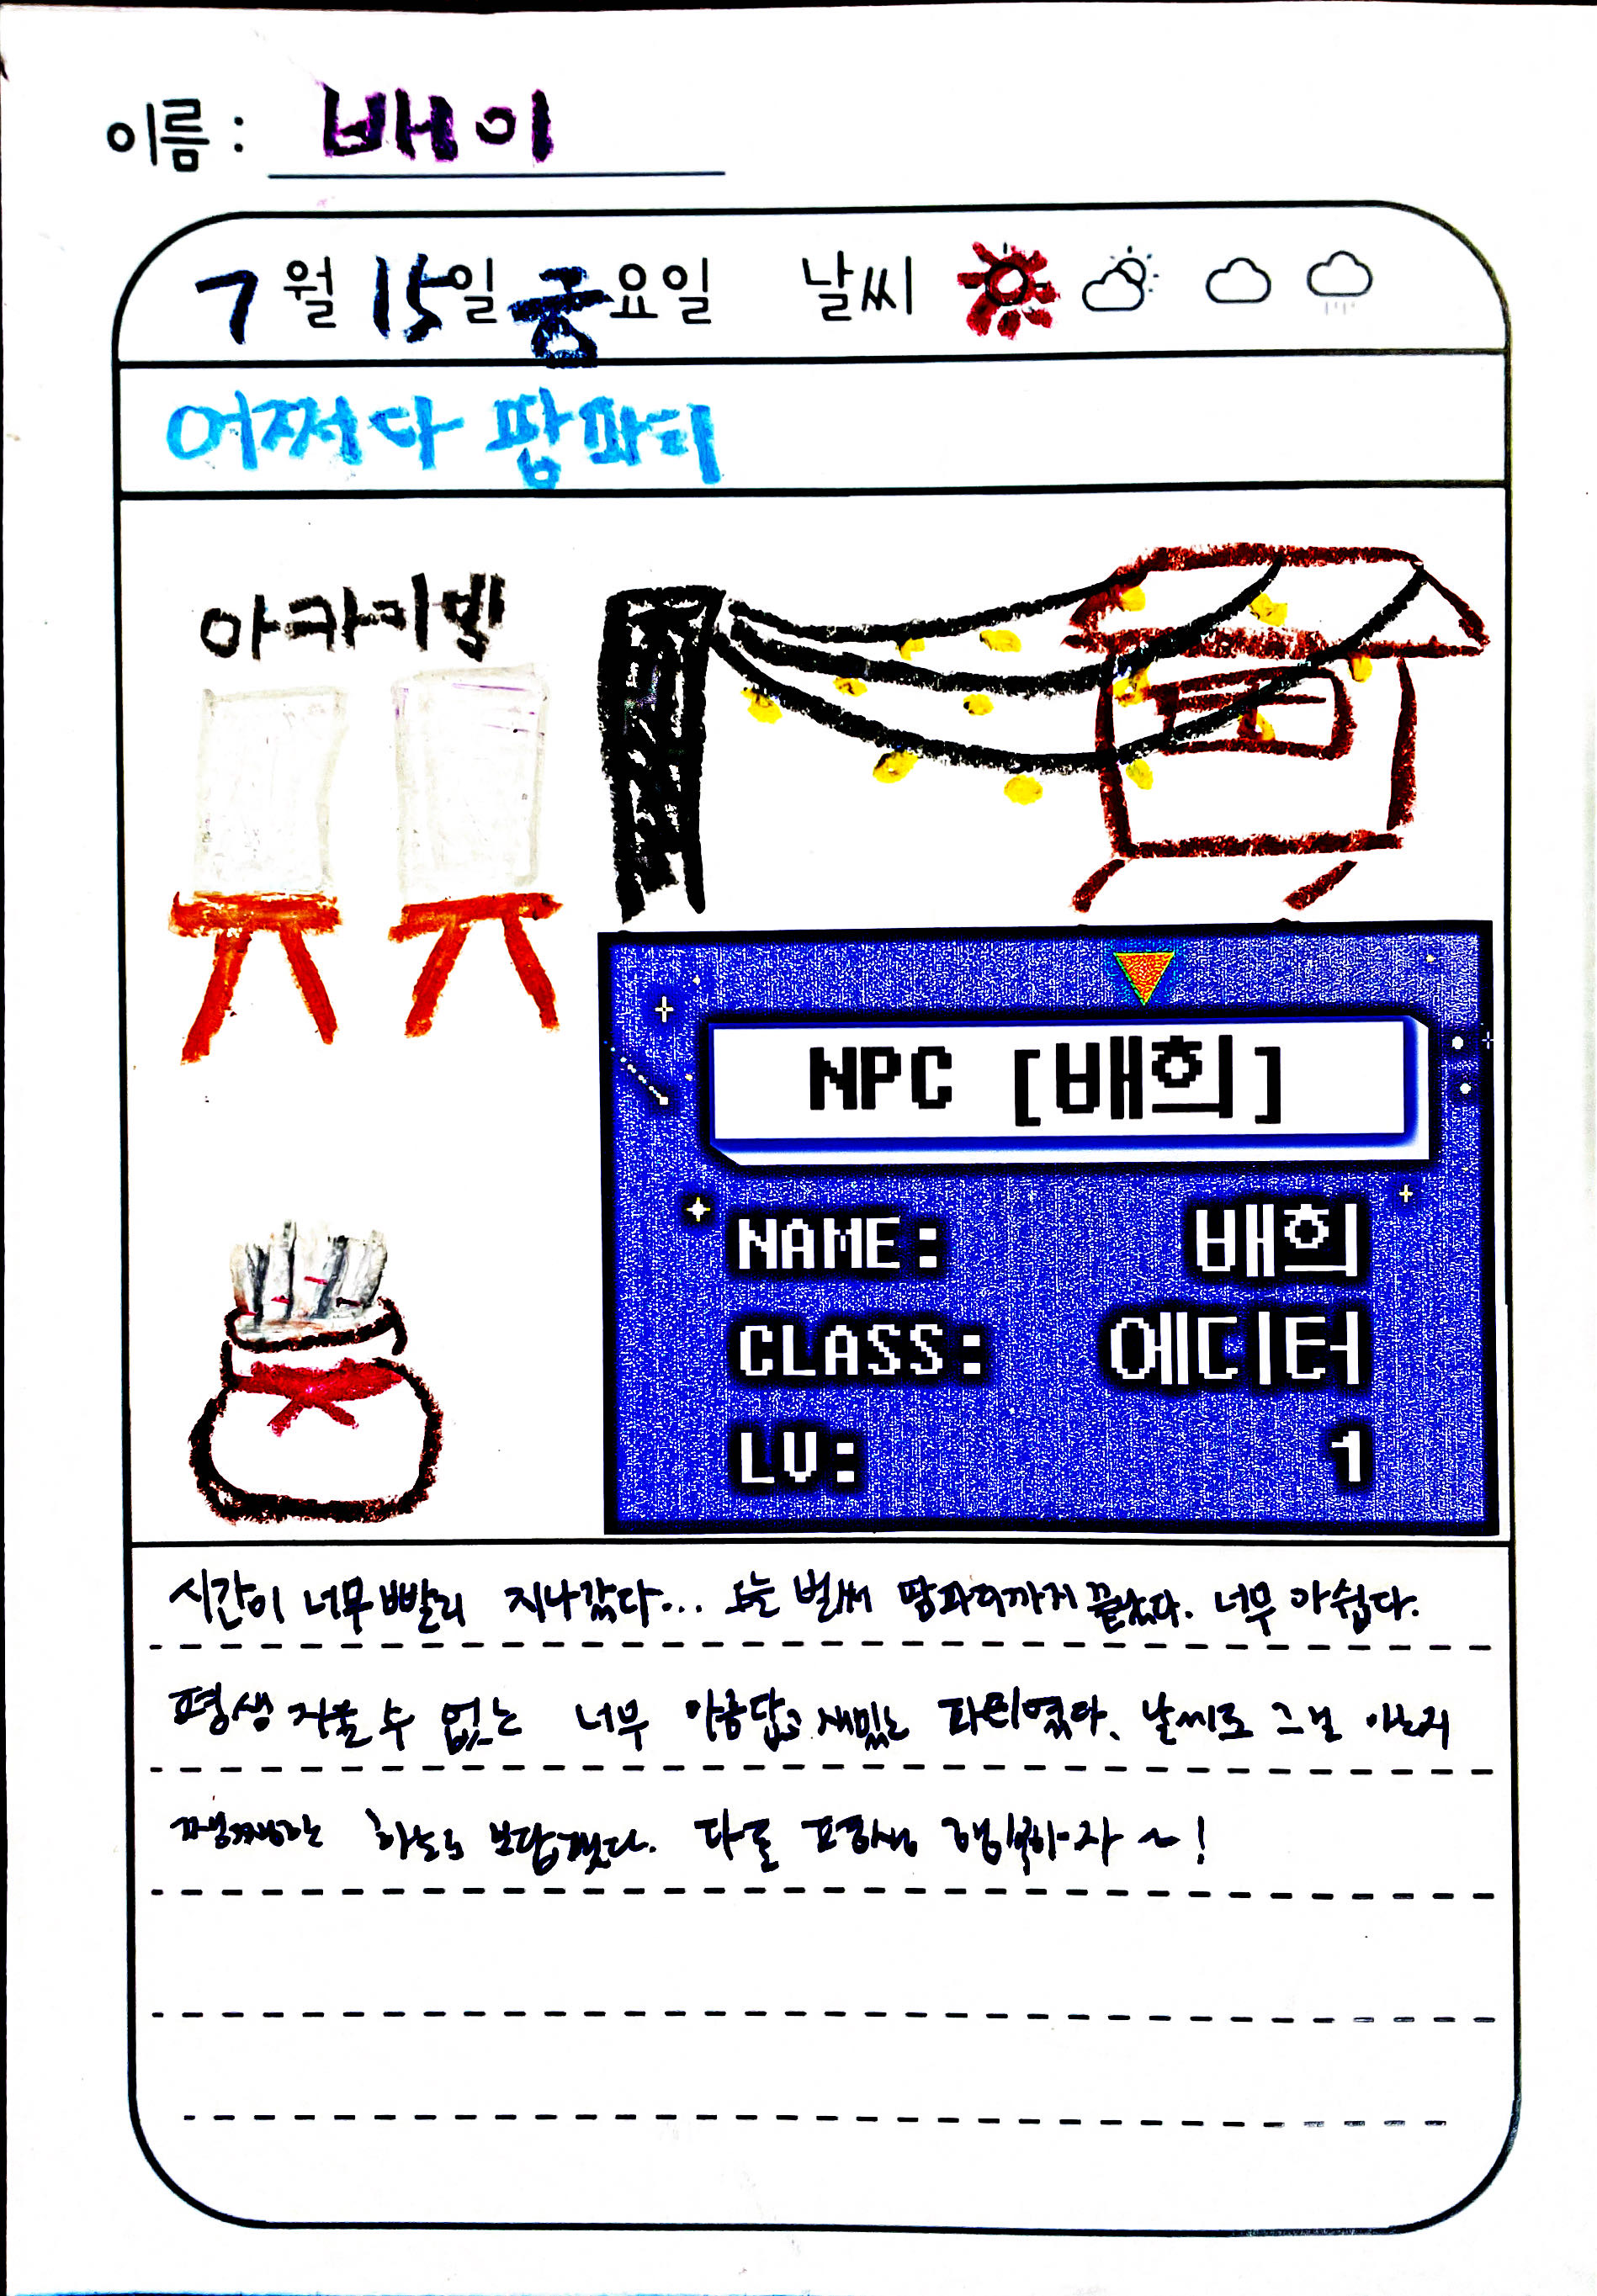 이름 : 배이
7월 15일 금요일 날씨
어쩌다 팜파티
아카이빙
NPC [배희]
NAME: 배희
CLASS: 에디터
LV: 1
시간이 너무 빨리 지나갔다... 오늘 벌써 팜파티까지 끝났다. 너무 아쉽다.
평생 지울 수 없는 너무 아름답고 재밌는 파티였다. 날씨도 그걸 아는지
쨍쨍하는 하늘로 보답했다. 다들 평생 행복하자 ~!